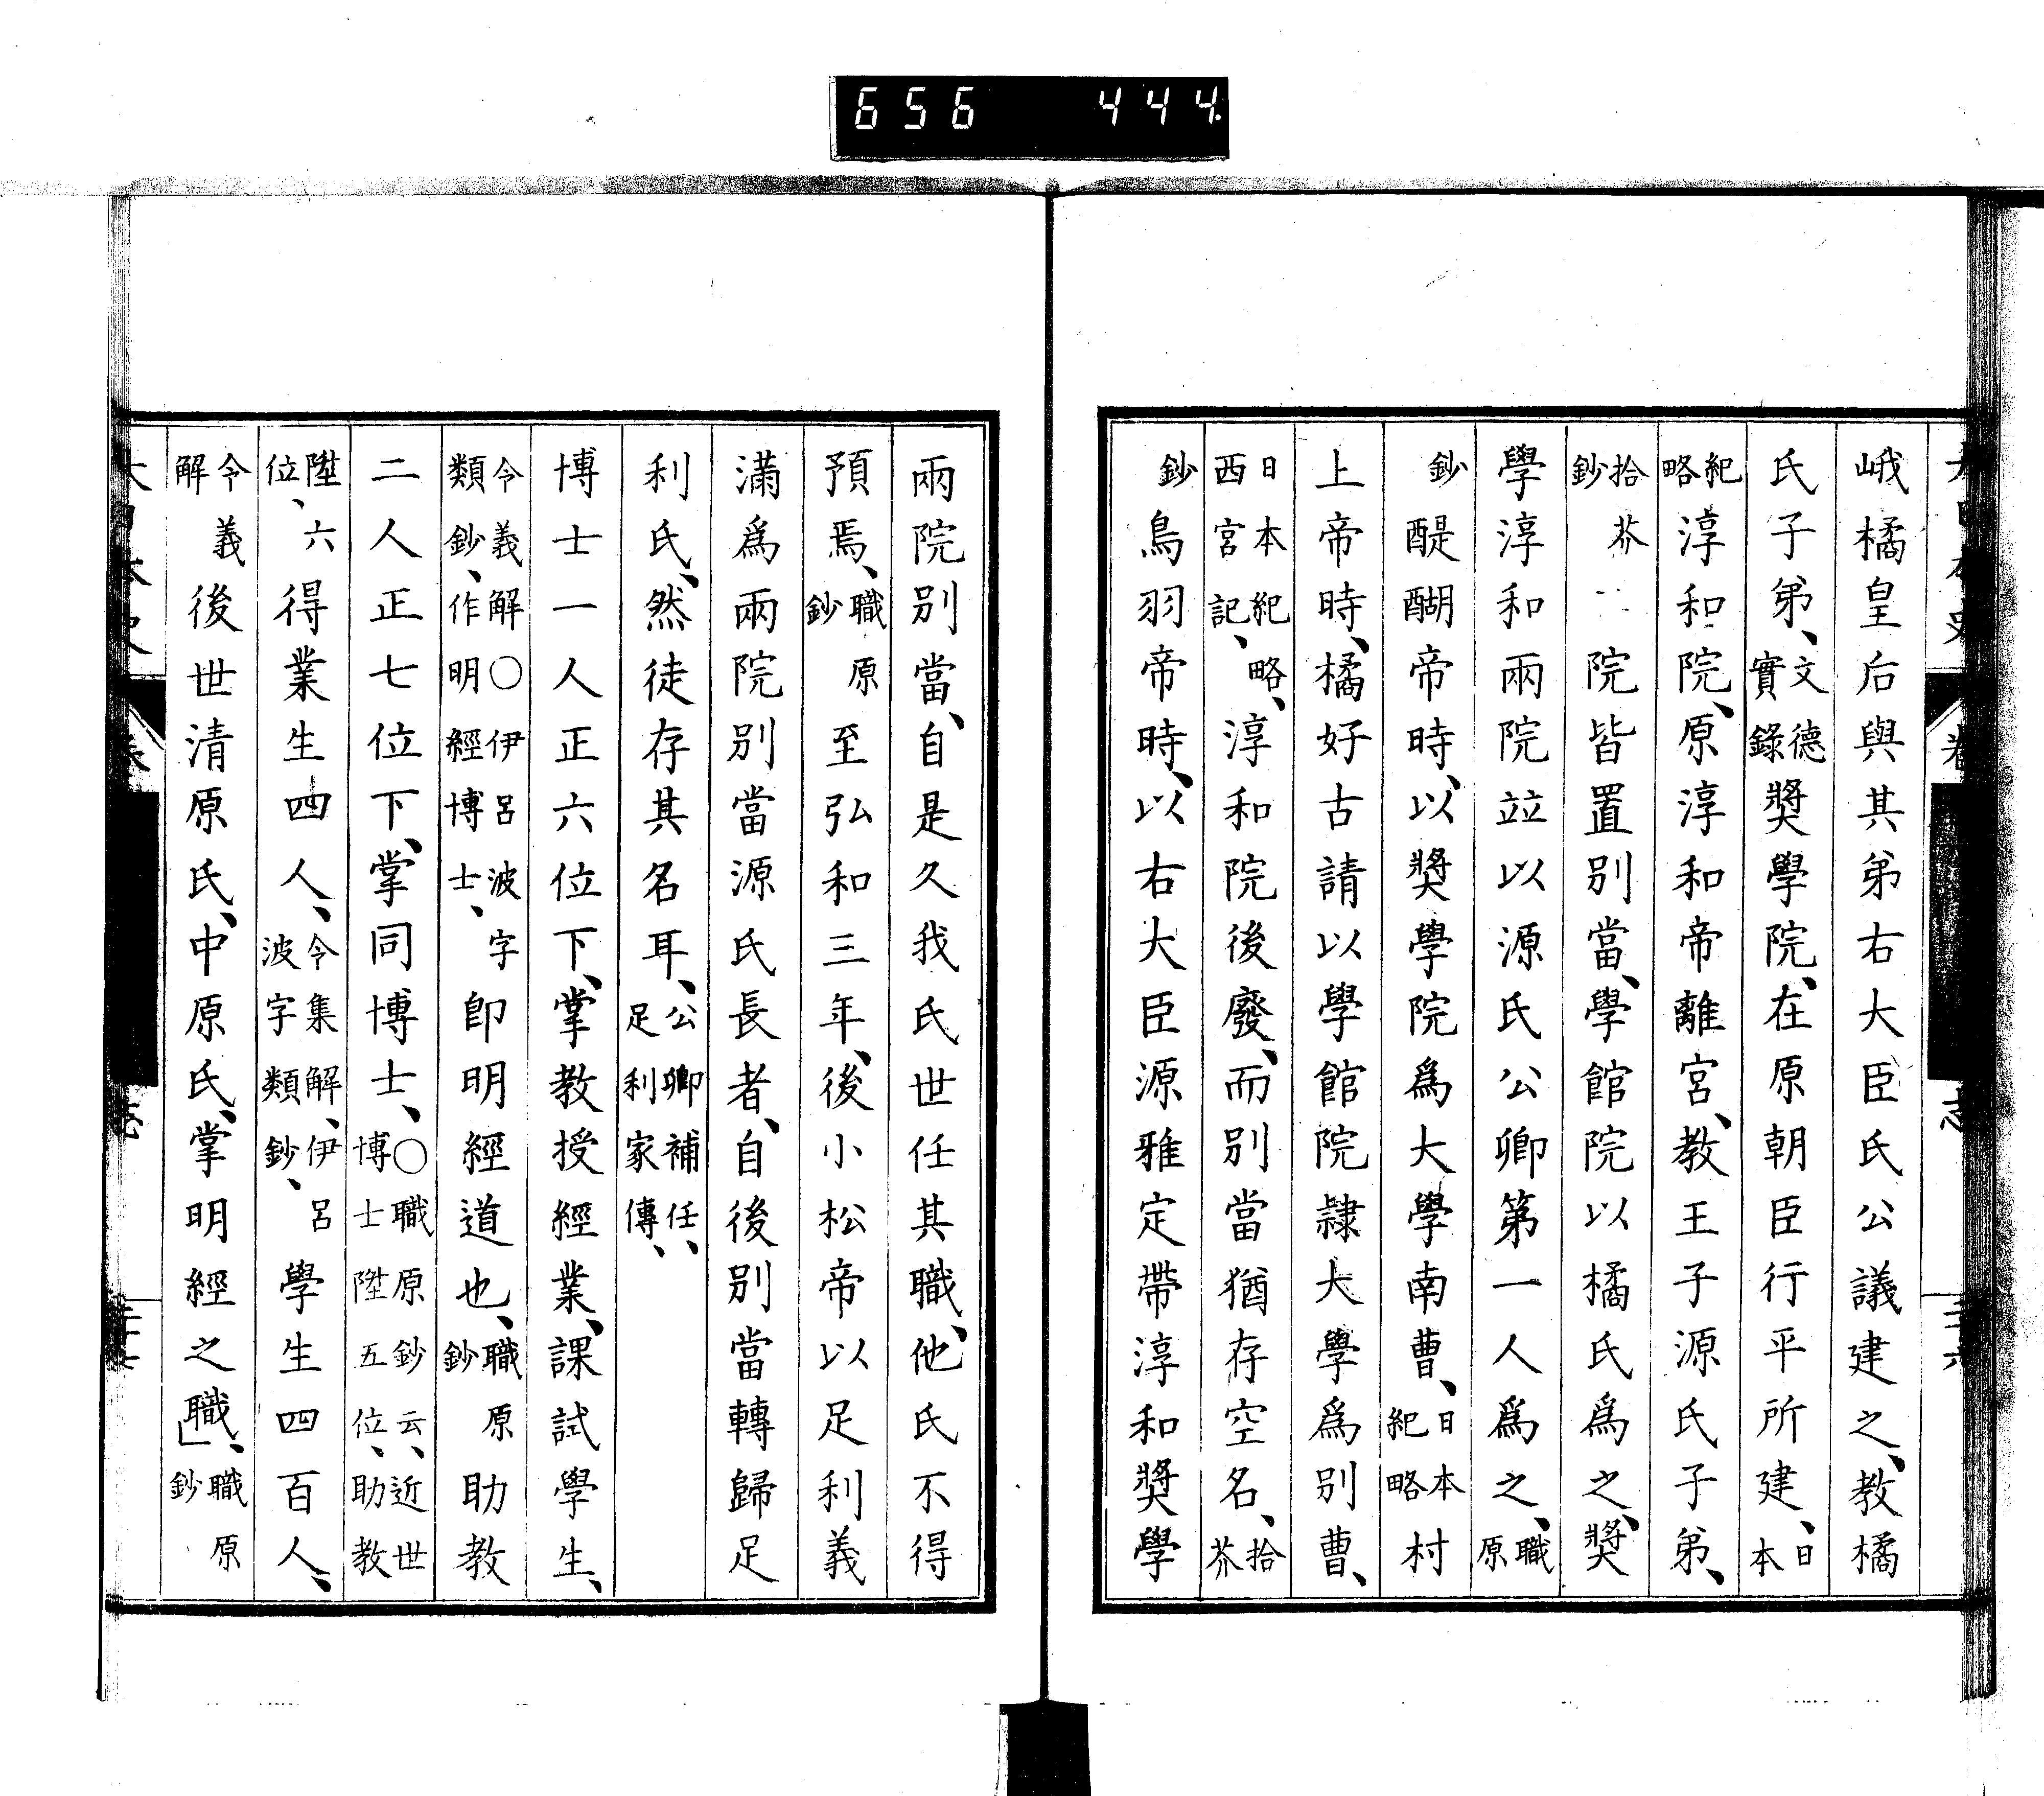 656 444
峨橘皇后與其弟右大臣氏公議建之、教橘
氏子弟、文德實錄奬學院、在原朝臣行平所建、日本
紀略淳和院、原淳和帝離宮、教王子源氏子弟、
拾芥鈔院皆置別當、學館院以橘氏爲之、奬
學淳和兩院竝以源氏公卿第一人爲之、職原
鈔醍醐帝時、以奬學院爲大學南曹、日本紀略村
上帝時、橘好古請以學館院隷大學爲別曹、
日本紀略、西宮記、淳和院後廢、而別當猶存空名、拾芥
鈔鳥羽帝時、以右大臣源雅定帶淳和奬學
兩院別當、自是久我氏世任其職、他氏不得
預焉、職原鈔至弘和三年、後小松帝以足利義
滿爲兩院別當源氏長者、自後別當轉歸足
利氏、然徒存其名耳、公卿補任、足利家傳、
博士一人正六位下、掌教授經業、課試學生、
令義解○伊呂波字類鈔、作明經博士、卽明經道也、職原鈔助教
二人正七位下、掌同博士、○職原鈔云、近世博士陞五位、助教
陞六位、得業生四人、令集解、伊呂波字類鈔、學生四百人、
令義解後世清原氏、中原氏、掌明經之職、職原鈔